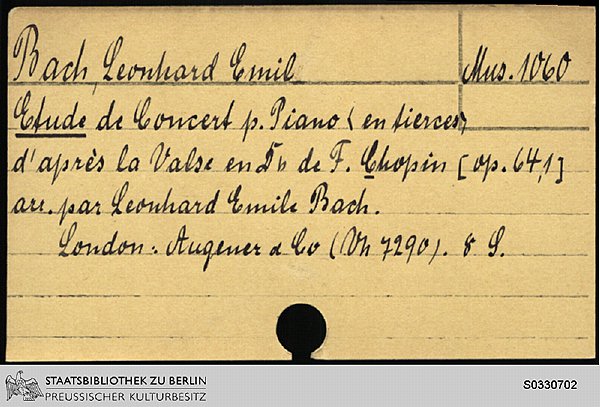 Bach, Leonhard Emil
Mus. 1060
Etude de Concert p. Piano (en tierces)
d'après la Valse en Db de F. Chopin [op. 64,1]
arr. par Leonhard Emile Bach.
London: Augener & Co (Vn 7290). 8 S.
STAATSBIBLIOTHEK ZU BERLIN
PREUSSISCHER KULTURBESITZ
S0330702